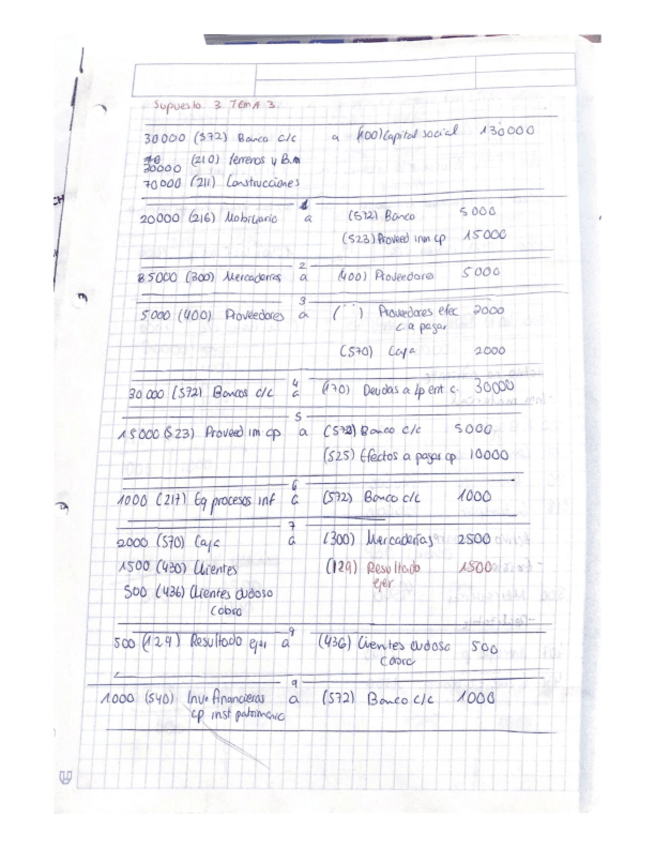 Supuesto 3 Tema 3.
30000 (572) Banco c/c a (100) Capital social 130000
30000 (210) terrenos y B.n
70000 (211) Construcciones
1
20000 (216) Mobiliario a (572) Banco 5000
(523) Proveed inm cp 15000
2
5000 (300) Mercaderias a (400) Proveedores 5000
3
5000 (400) Proveedores a ( `` ) Proveedores efec 2000
c a pagar
(570) Caja 2000
4
30 000 (572) Bancos c/c a (170) Deudas a lp ent c. 30000
5
15000 (523) Proveed im cp a (572) Banco c/c 5000
(525) Efectos a pagar cp 10000
6
1000 (217) Eq procesos inf a (572) Banco c/c 1000
7
2000 (570) Caja a (300) Mercaderías 2500
1500 (430) Clientes (129) Resultado 1500
ejer
500 (436) Clientes dudoso
cobro
500 (129) Resultado ejer a (436) Clientes dudoso 500
cobro
9
1000 (540) Inv. financieras a (572) Banco c/c 1000
cp inst patrimonio